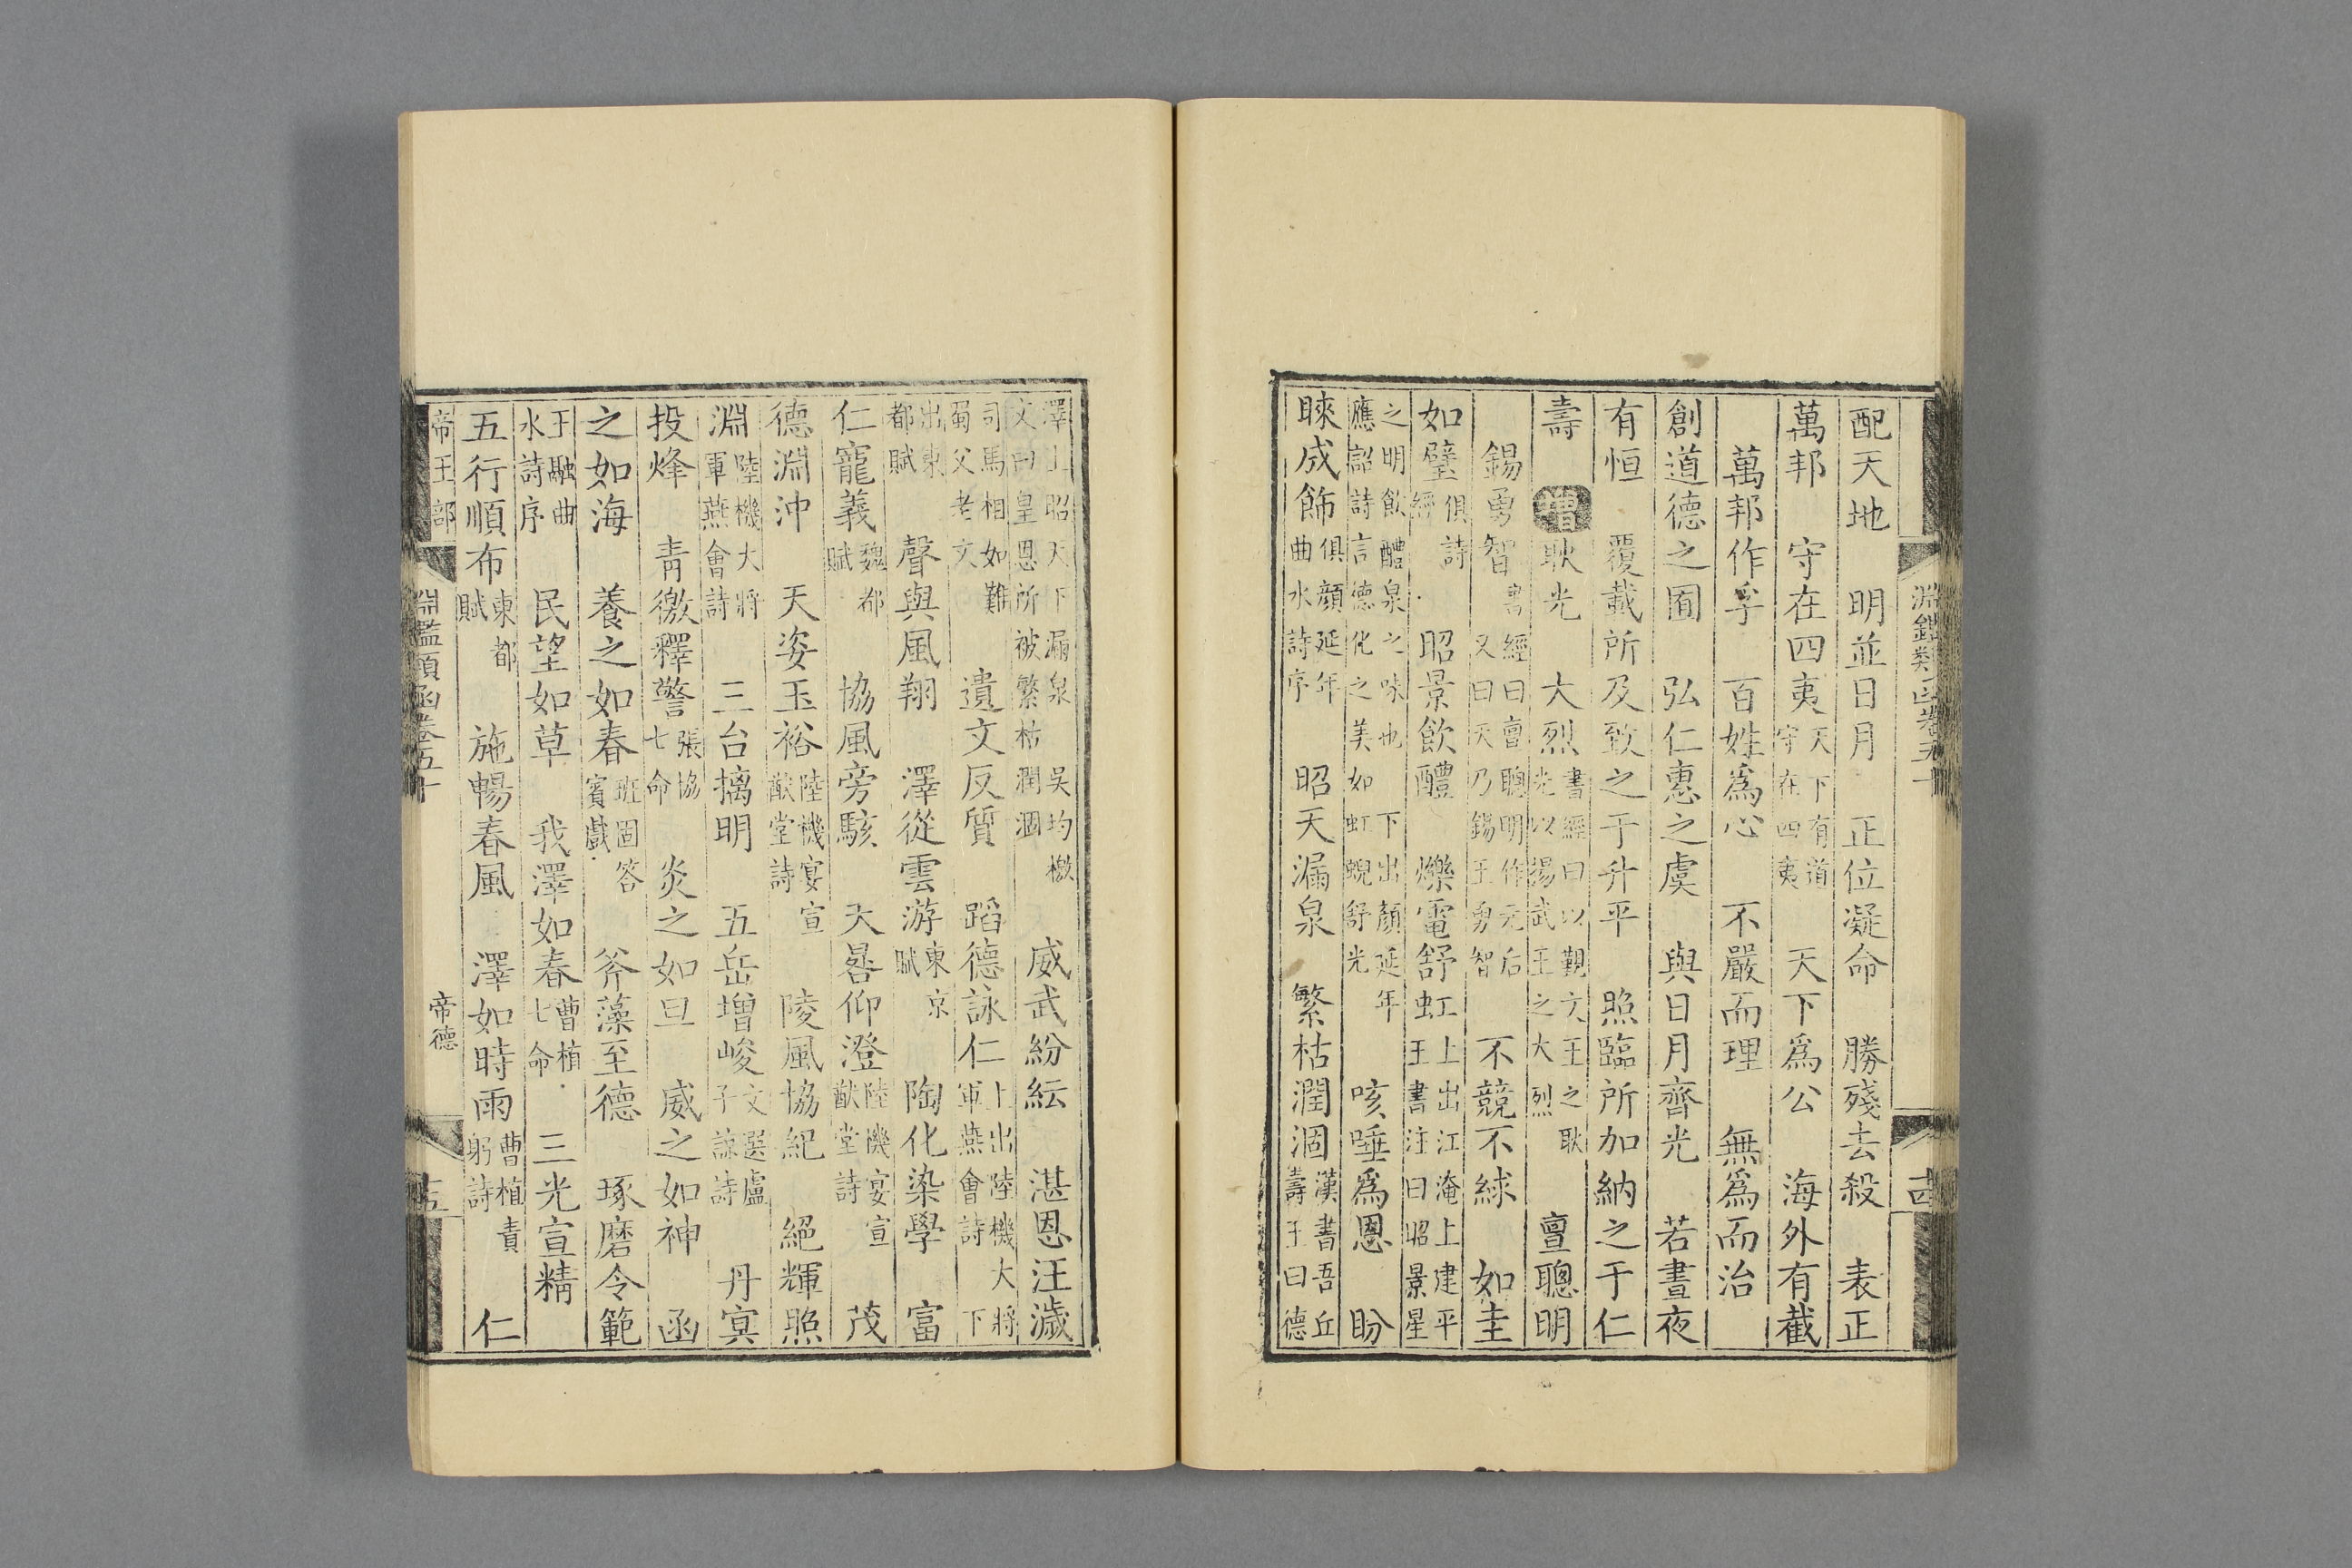 淵鑑類函卷五十
配天地　明並日月　正位凝命　勝殘去殺　表正
萬邦　守在四夷天下有道守在四夷　天下爲公　海外有截
萬邦作孚　百姓爲心　不嚴而理　無爲而治
創道德之囿　弘仁惠之虞　與日月齊光　若晝夜
有恒　覆載所及致之于升平　照臨所加納之于仁
壽　增耿光　大烈書經曰以覲文王之耿光以揚武王之大烈　亶聰明
錫勇智書經曰亶聰明作元后又曰天乃錫王勇智　不競不絿　如圭
如璧俱詩經　昭景飲醴　爍電舒虹上出江淹上建平王書注曰昭景星
之明飲醴泉之味也　下出顏延年應詔詩言德化之美如虹蜺舒光　咳唾爲恩　盼
睞成飾俱顔延年曲水詩序　昭天漏泉　繁枯潤涸漢書吾丘壽王曰德
澤上昭天下漏泉　吳均檄文曰皇恩所被繁枯潤涸　威武紛紜　湛恩汪濊
司馬相如難蜀父老文　遺文反質　蹈德詠仁上出陸機大將軍燕會詩　下
出東都賦　聲與風翔　澤從雲游東京賦　陶化染學　富
仁寵義魏都賦　協風旁駭　天晷仰澄陸機宴宣猷堂詩　茂
德淵沖　天姿玉裕陸機宴宣猷堂詩　陵風協紀　絕輝照
淵陸機大將軍燕會詩　三台摛明　五岳增峻文選盧子諒詩　丹冥
投烽　青徼釋警張協七命　炎之如旦　威之如神　函
之如海　養之如春班固答賓戲　斧藻至德　琢磨令範
王融曲水詩序　民望如草　我澤如春曹植七命　三光宣精
五行順布東都賦　施暢春風　澤如時雨曹植責躬詩　仁
帝王部　淵鑑類函卷五十　帝德